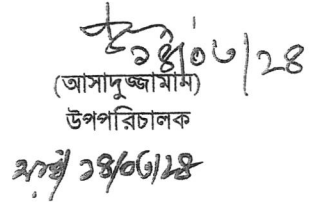 ১৪/০৩/২৪
(আসাদুজ্জামান)
উপপরিচালক
১৪/০৩/২৪